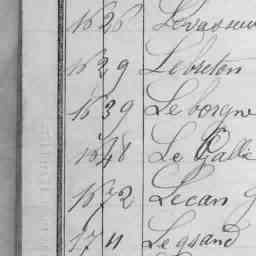 1626 Levasseur
1629 Lebreton
1639 Le borgne
1648 Le Galli
1672 Lecan G
1711 Legrand